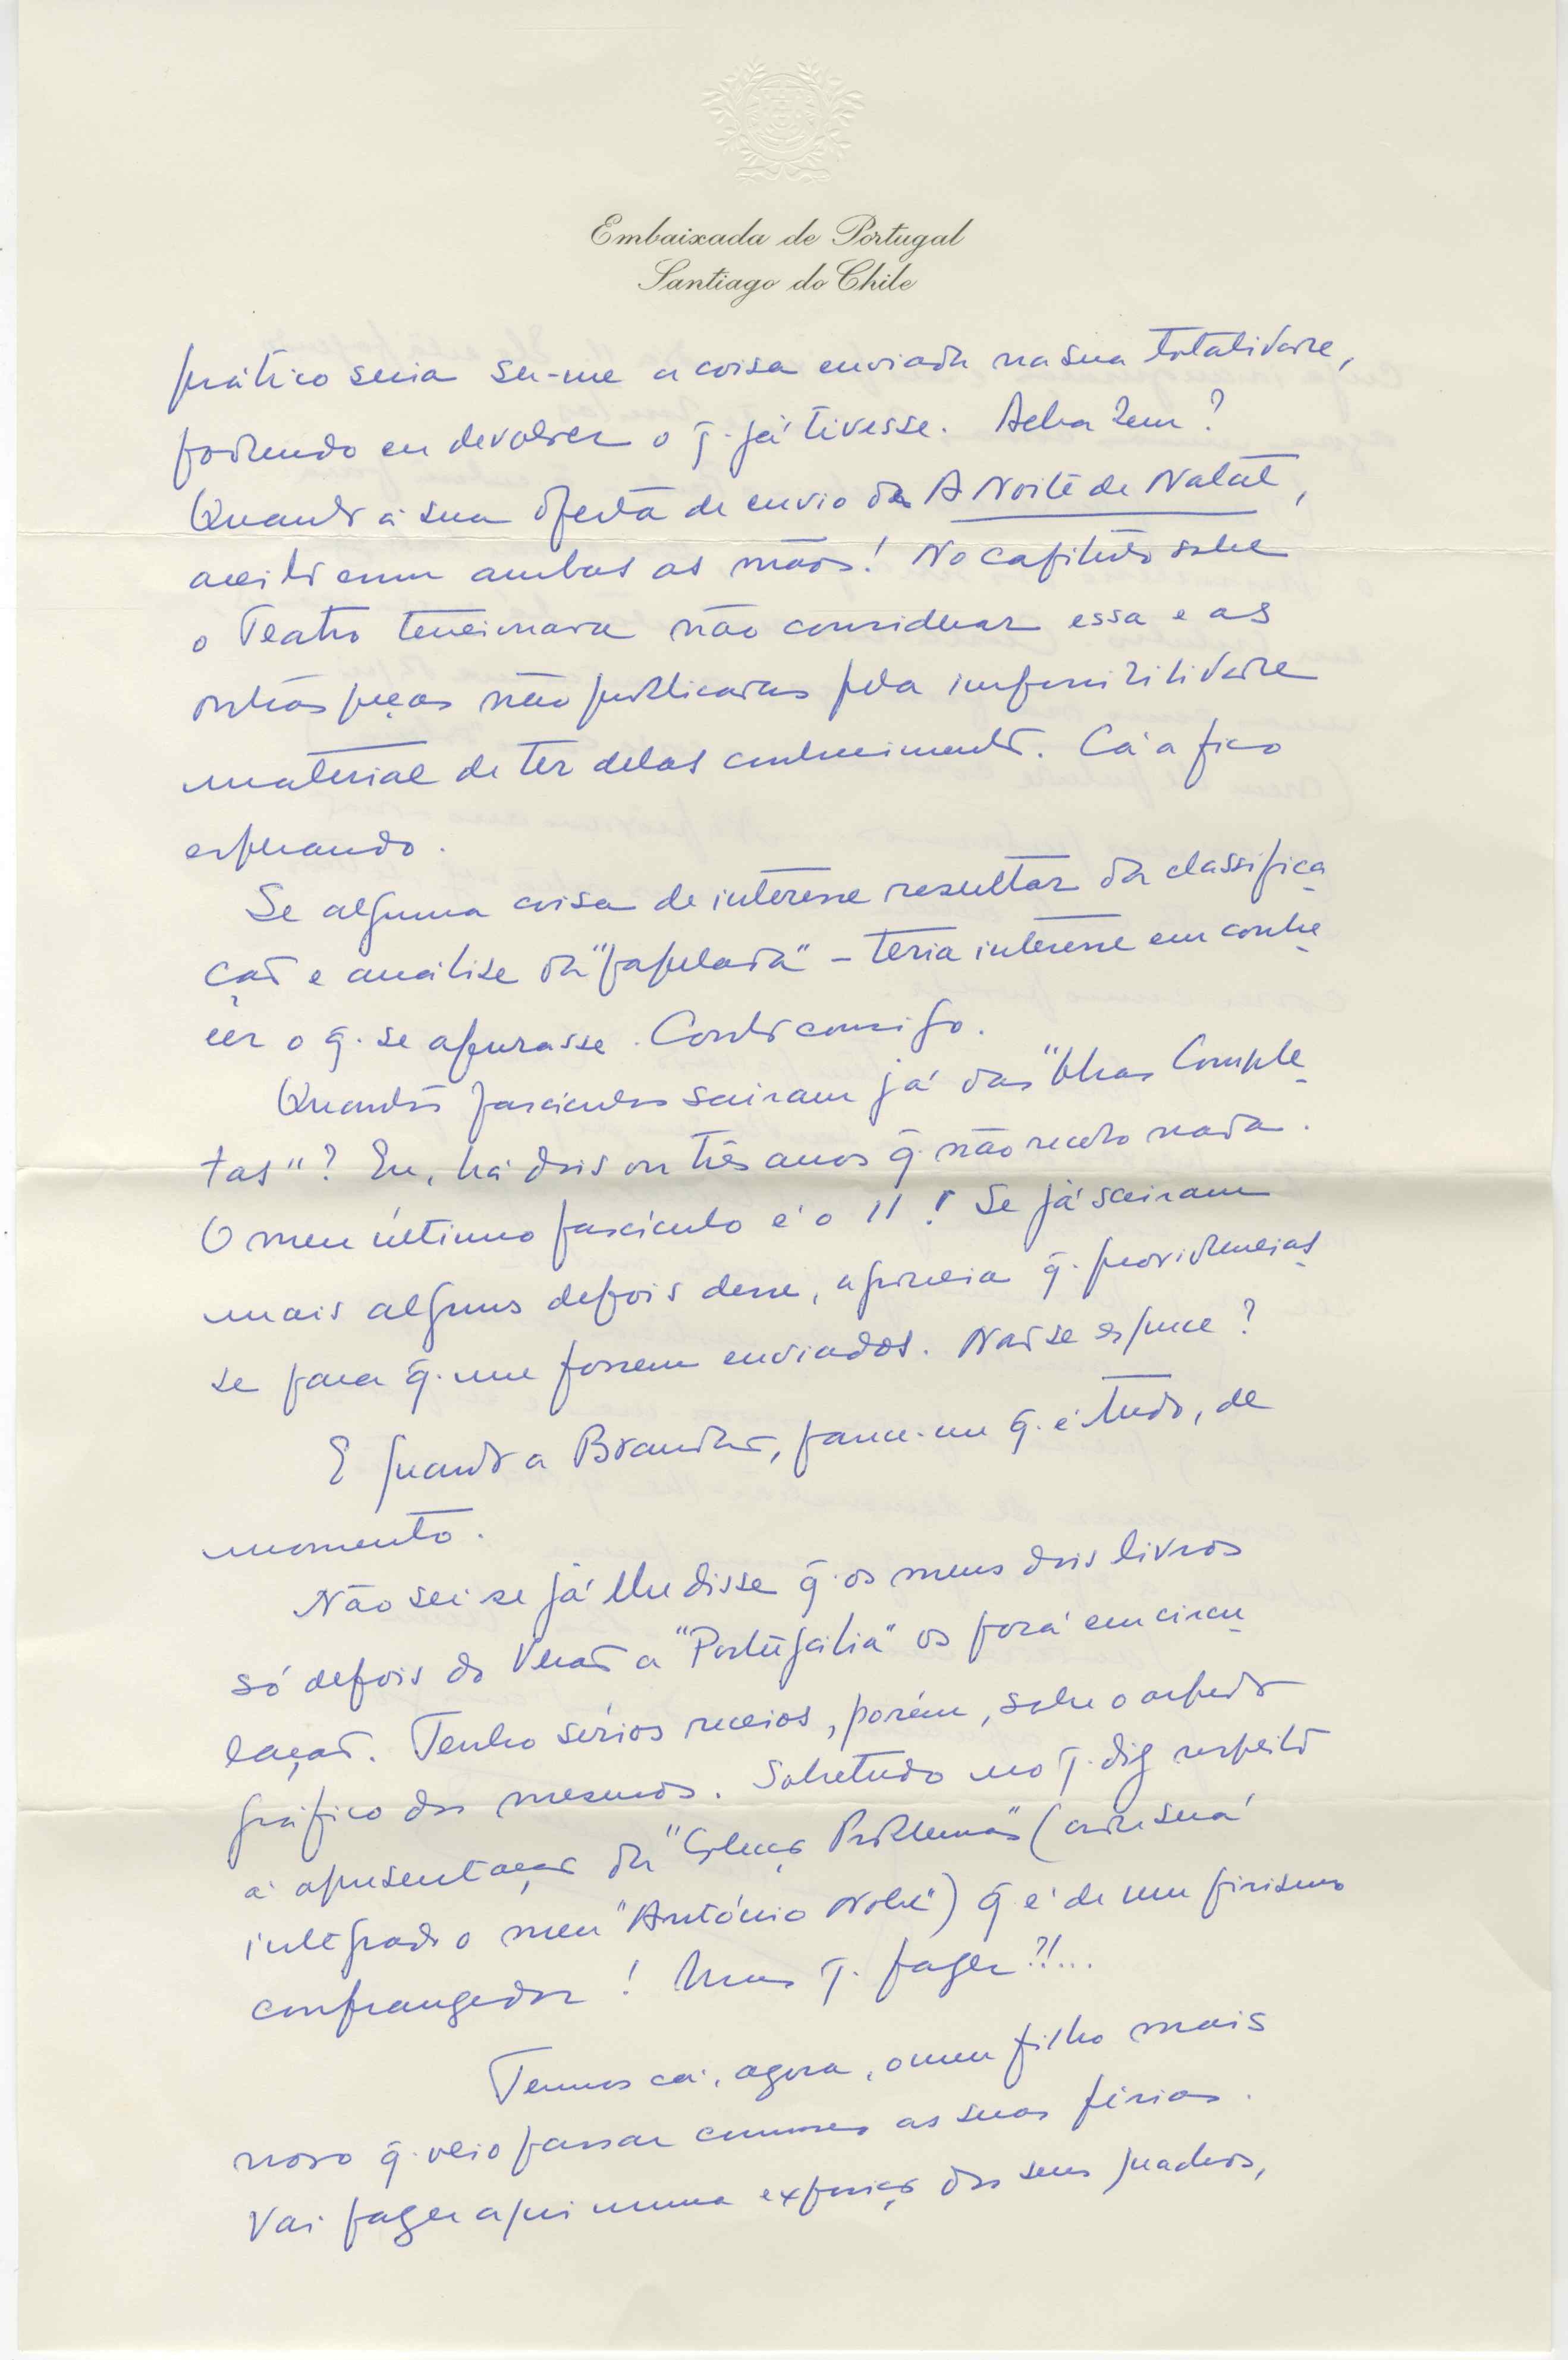 Embaixada de Portugal
Santiago do Chile
prático seria ser-me a coisa enviada na sua totalidade,
podendo eu devolver o q. já tivesse. Acha bem?
Quanto à sua oferta de envio da A Noite de Natal,
aceito com ambas as mãos! No capítulo sobre
o Teatro tencionava não considerar essa e as
outras peças não publicadas pela impossibilidade
material de ter delas conhecimento. Cá a fico
esperando.
Se alguma coisa de interesse resultar da classifica
ção e análise da "papelada" – teria interesse em conhe
cer o q. se apurasse. Conto consigo.
Quantos fascículos sairam já das "Obras Comple
tas"? Eu, há dois ou três anos q. não recebo nada.
O meu último fascículo é o 11! Se já sairam
mais alguns depois desse, agradecia q. providencias
se para q. me fossem enviados. Não se esquece?
E quanto a Brandão, parece-me q. é tudo, de
momento.
Não sei se já lhe disse q. os meus dois livros
só depois do Verão a "Portugália" os porá em circu
lação. Tenho sérios receios, porém, sobre o aspecto
gráfico dos mesmos. Sobretudo no q. diz respeito
à apresentação da "Colecção Problemas" (onde será
integrado o meu "António Nobre") q é de um pirismo
confrangedor! Mas q. fazer?!...
Temos cá, agora, o meu filho mais
novo q. veio passar connosco as suas férias.
Vai fazer aqui uma exposição dos seus quadros,